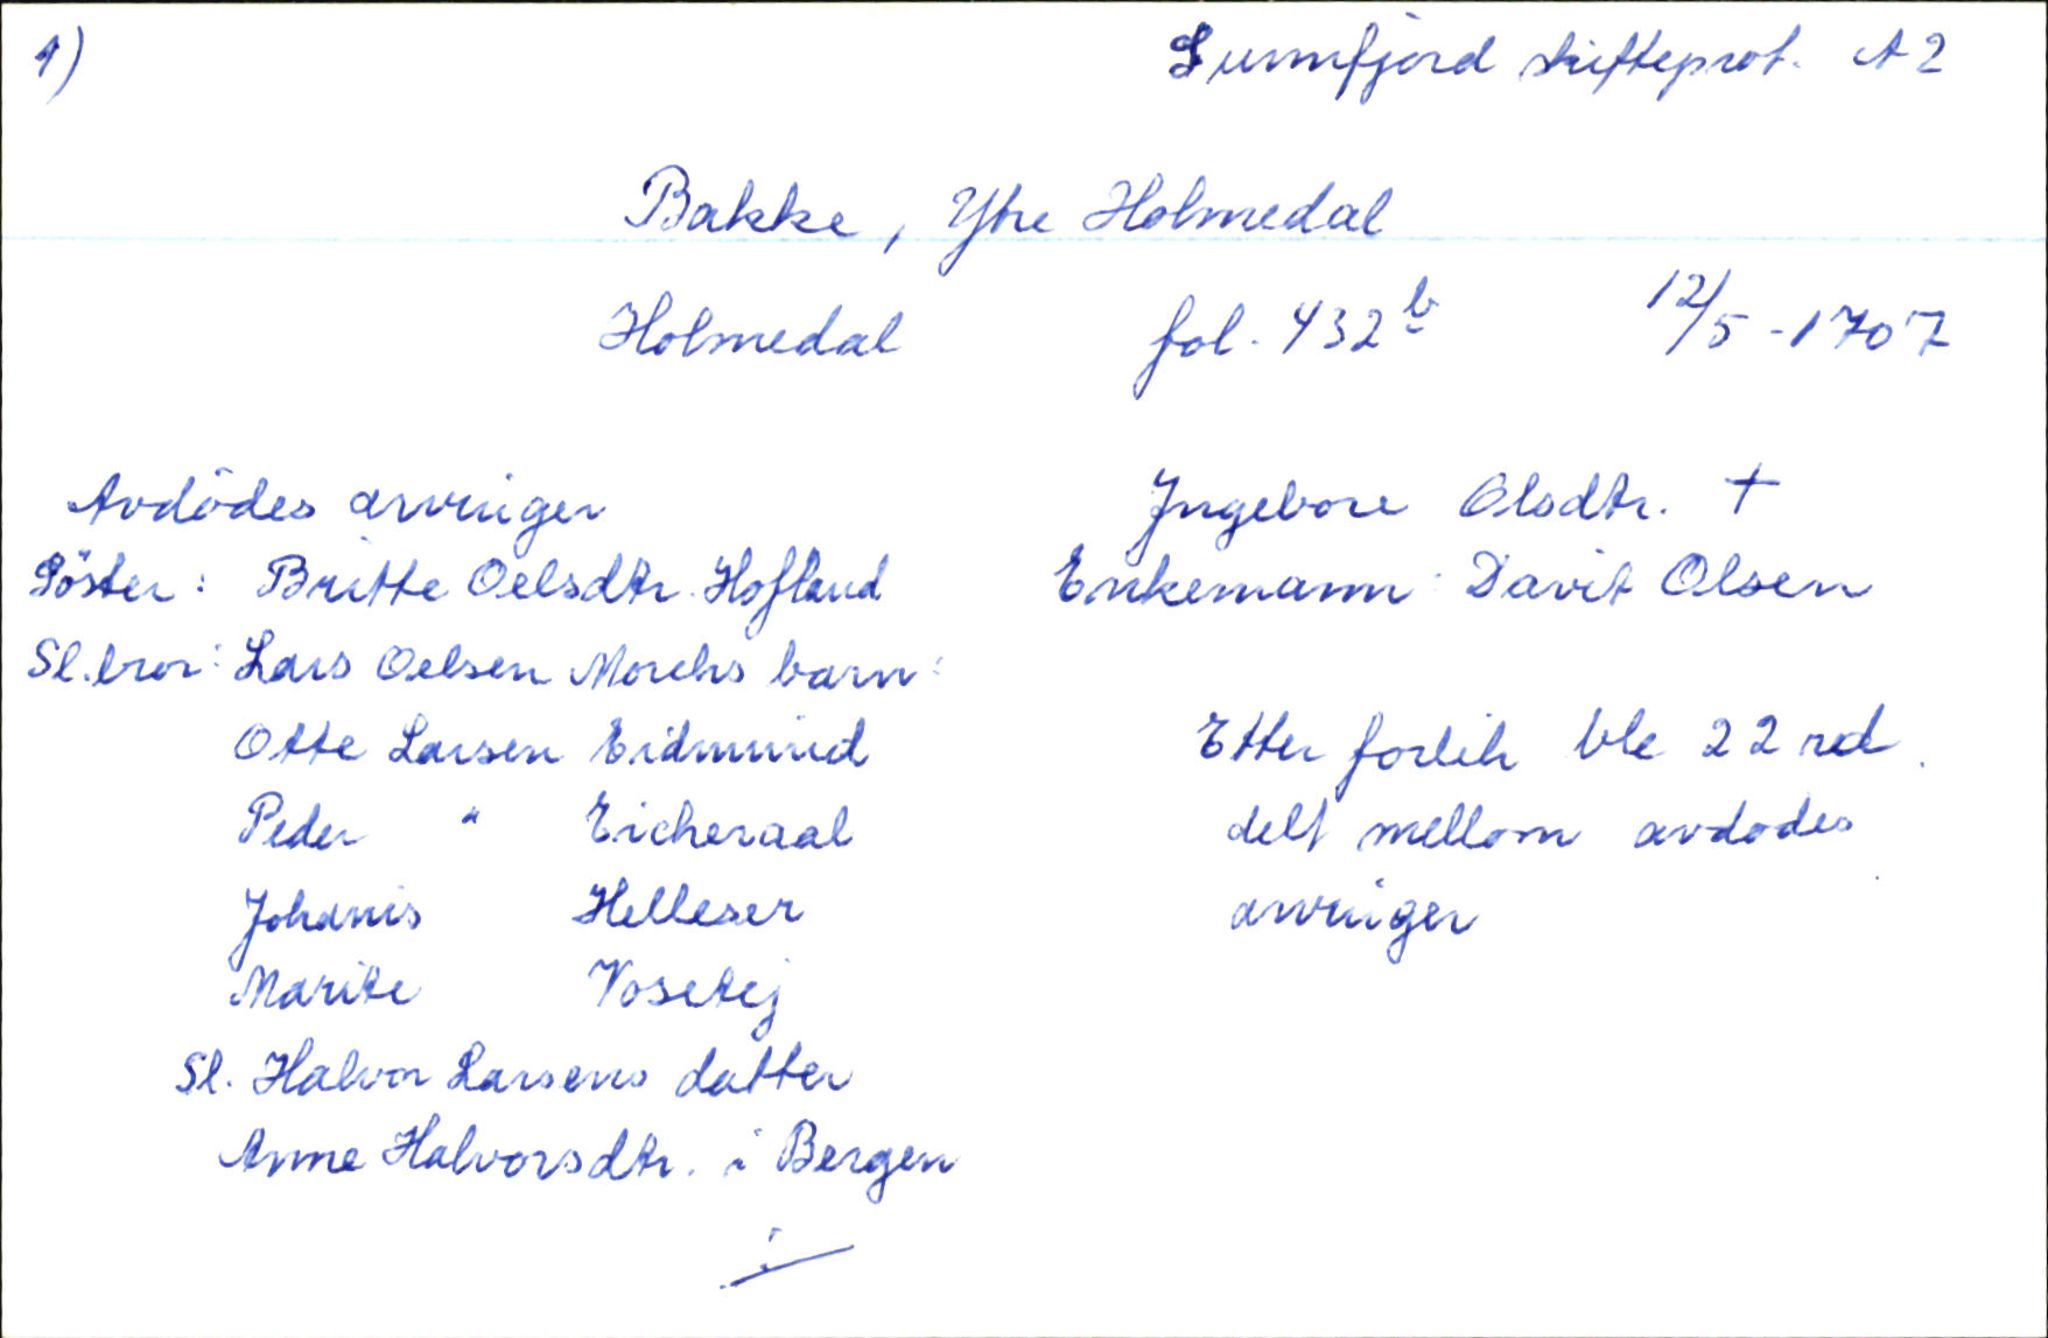 1)
Sunnfjord skifteprot. A 2
Bakke, Ytre Holmedal
Holmedal fol. 432 b 12/5 - 1707
Avdödes arvinger
Söster: Britte Oelsdtr. Hofland
Sl. bror: Lars Oelsen Morchs barn:
Otte Larsen Eidmund
Peder " Eicheraal
Johanis Helleser
Marite Vosetej
Sl. Halvor Larsens datter
Anne Halvorsdtr. i Bergen
Ingebore Olsdtr. +
Enkemann: Davit Olsen
Etter forlik ble 22 rd.
delt mellom avdødes
arvinger